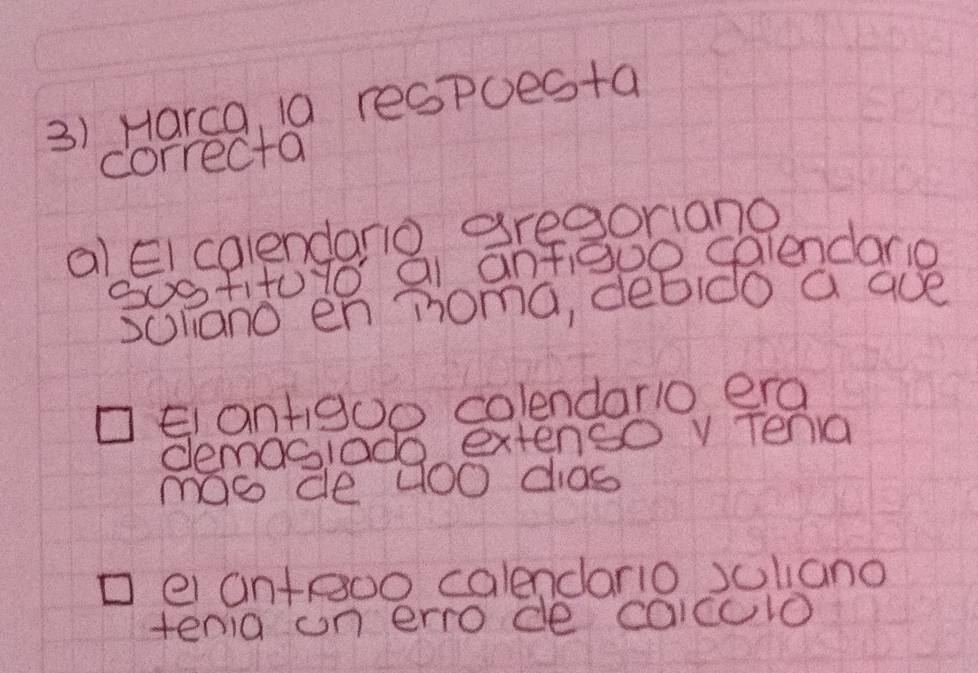 3) Marca la respuesta
correcta
a) El calendario gregoriano
sustituyó al antiguo calendario
juliano en Roma, debido a que
□ El antiguo calendario era
demasiado extenso y Tenia
más de 400 dias
□ el antiguo calendario juliano
tenia un erro de calculo